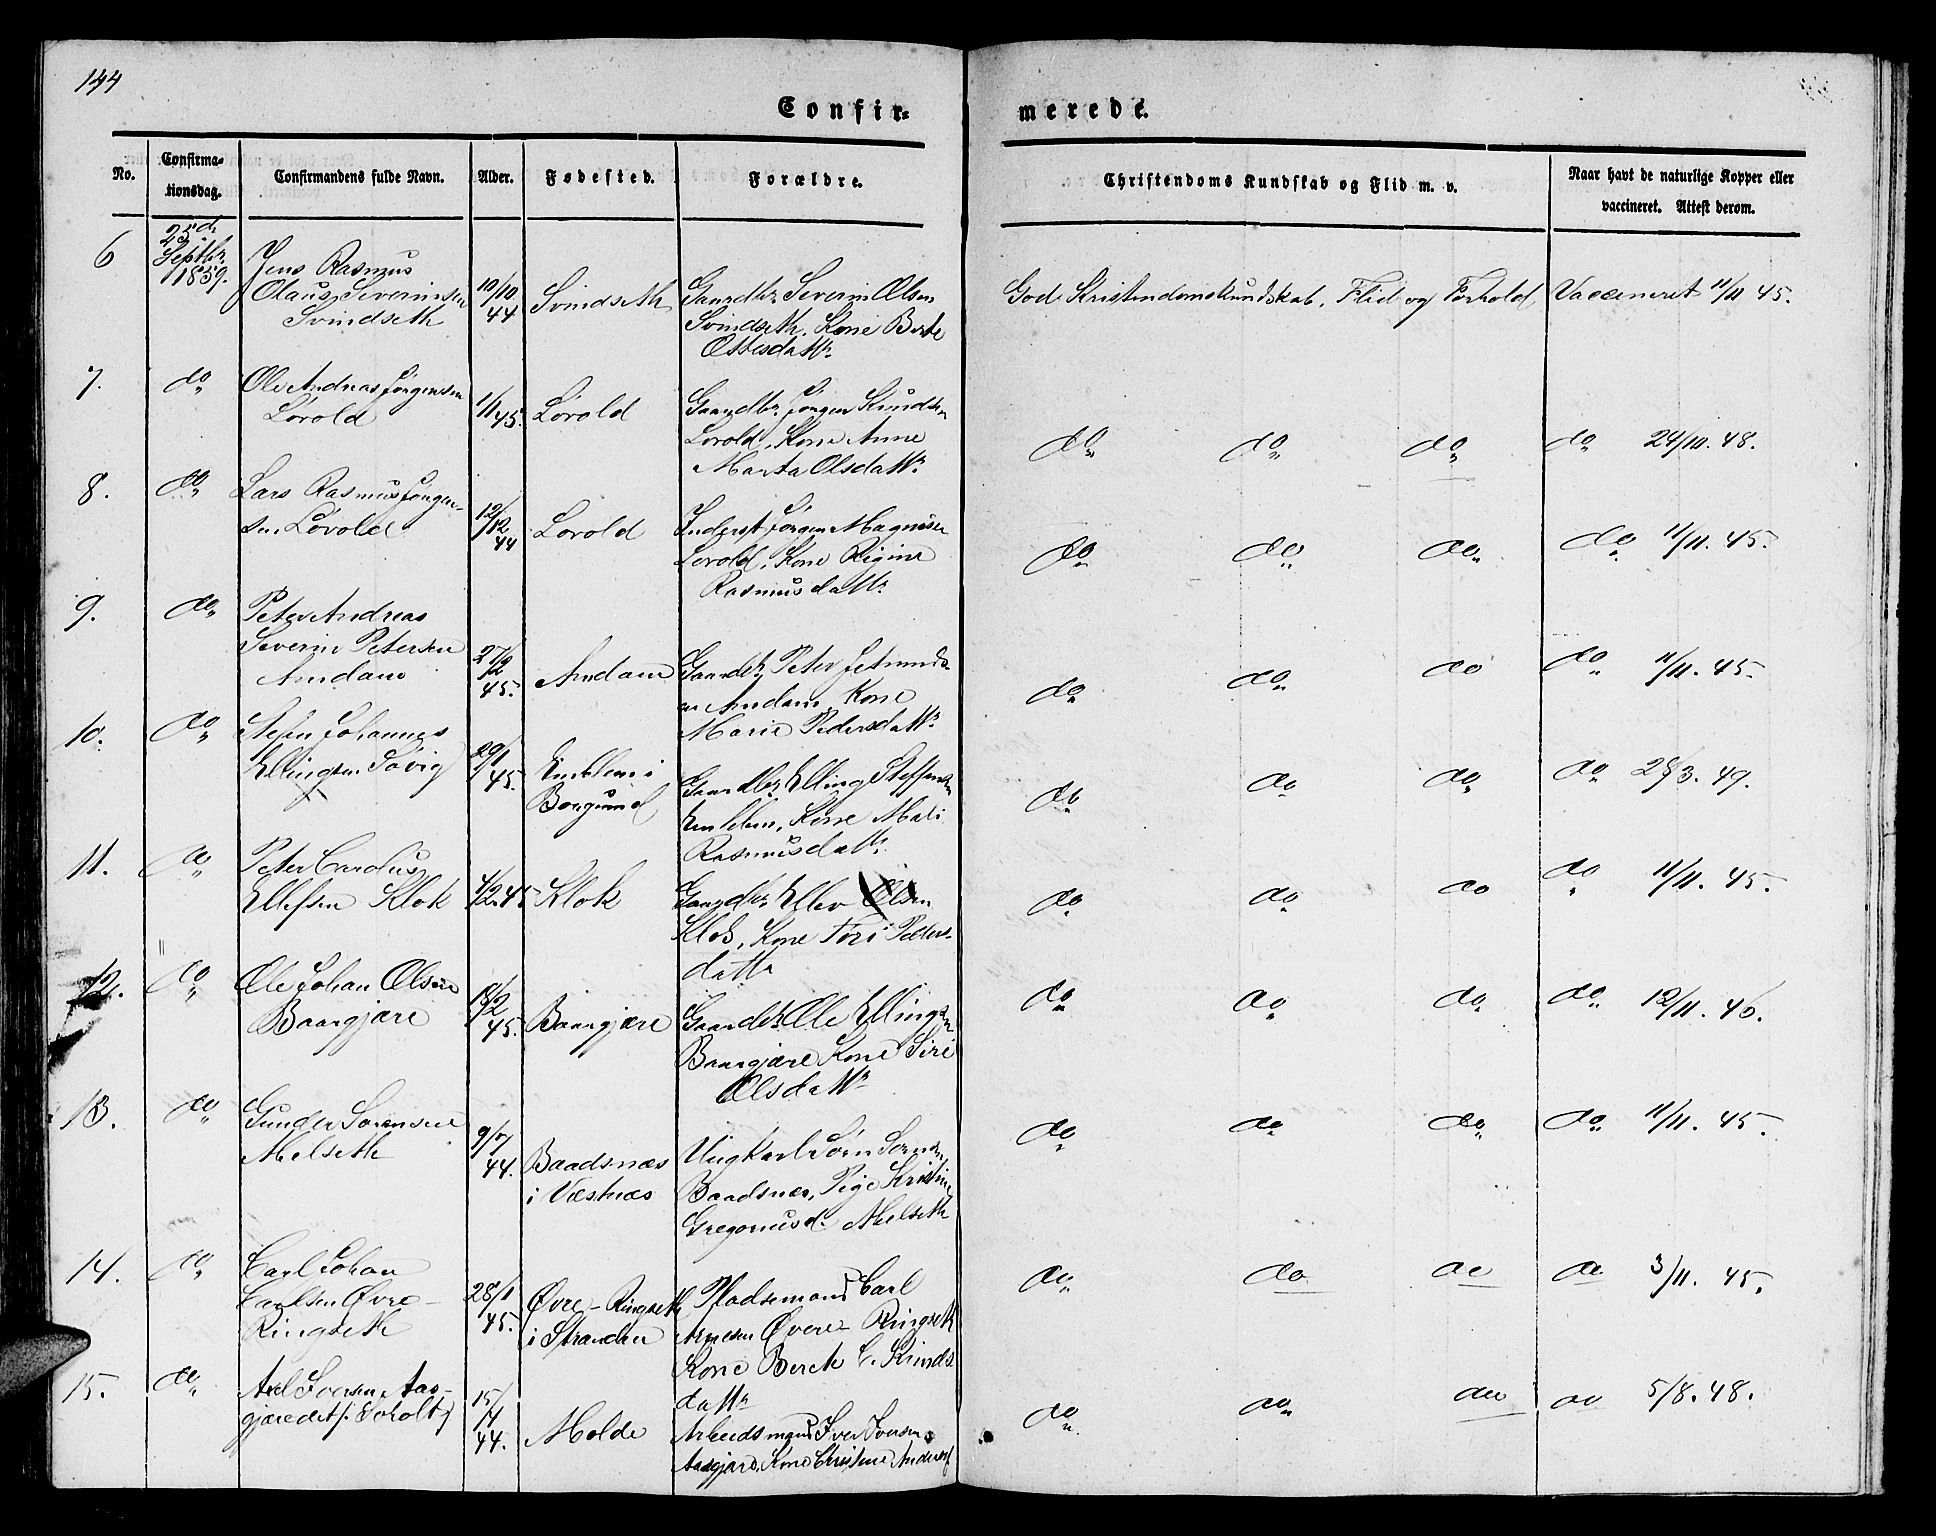 144
Confir-
merede.
No.
Confirma-
tionsdag.
Confirmandens fulde Navn.
Alder.
Fødested.
Forældre.
Christendoms Kundskab og Flid m. v.
Naar havt de naturlige Kopper eller
vaccineret. Attest derom.
6
Septbr.
1859.
Jens Rasmus
Olaus Severinsen
Svindseth
10/10
44
Svindseth
Gaardbr. Severin Olsen
Svindseth, Kone Berte
God Kristendomskundskab, Flid og Forhold
Vaccineret 11/11 45.
7.
do
Ole Andreas Jørgensen
Løvold
1/1
45.
Løvold
Gaardbr. Jørgen Knudsen
Lovold, Kone Anne
Marta Olsdattr.
do do do
do 24/10. 48.
8.
do
Lars Rasmus Jørgen-
sen Løvold
12/12
44
Lovold
Inderst Jørgen Magnusen
Lovold, Kone Rigine
Rasmusdattr.
do do do
do 11/11. 45.
9.
do
Peter Andreas
Severin Petersen
Amdam
27/2
45.
Amdam
Gaardbr. Peter
Amdam, Kone
Marie Pedersdattr.
do do do
do 11/11. 45.
10.
do
Johannes
Ellingsen Søvig
29/1
45.
Emblem i
Borgund
Gaardbr. Elling Steffensen
Emblem, Kone Mali
Rasmusdattr.
do do do
do 49.
11.
do
Peter Cardus
Ellefsen Klok
4/2 45
Klok
Gaardbr. Ellev Olsen
Klok, Kone Tori Peders-
dattr
do do do
do 11/11. 45.
12.
do
Ole Johan Olsen
Baargjære
18/2
45.
Baargjære
Gaardbr. Ole Ellingsen
Baargjære Kone Siri
Olsdattr
do do do
do 12/11. 46.
13.
do
Gunder Sørensen
Melseth
9/7
44.
Baadsnæs
i Vestnæs
Ungkarl Søren Sørensen
Baadsnæs, Pige Kristine
Gregoriusd. Melseth
do do do
do 11/11. 45.
14.
do
Carl Johan
Carlsen Øvre-
Ringseth
28/1
45.
Øvre-Ringseth
i Stranden
Pladsemand Carl
Arnesen Øvre Ringseth
Kone Knuds
dattr
do do do
do 3/11. 45.
15.
do
Axel Iversen Aas-
15/
44.
Molde
Arbeidsmand Iver Iversen
Aasgjære, Kone Christine
do do do
do 5/8. 48.